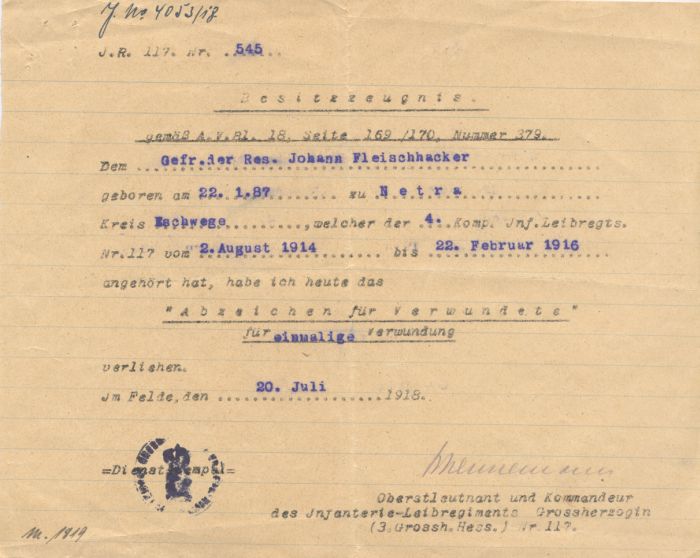 J. No 4053/18
J.R. 117. Nr. .545...
Besitzzeugnis.
gemäß A.V.Bl. 18, Seite 169 /170, Nummer 379.
Dem ....Gefr.der Res. Johann Fleischhacker....
geboren am 22. 1.87 ........ zu Netra........
Kreis Eschwege........,welcher der .4. Komp. Jnf.Leibregts.
Nr.117 vom 2.August 1914 ........ bis 22. Februar 1916
angehört hat, habe ich heute das
"Abzeichen für Verwundete"
für einmalige Verwundung
verliehen.
Jm Felde,den .....20. Juli........1918.
=Dienststempel=
Oberstleutnant und Kommandeur
des Jnfanterie-Leibregiments Grossherzogin
(3.Grossh.Hess.) Nr.117.